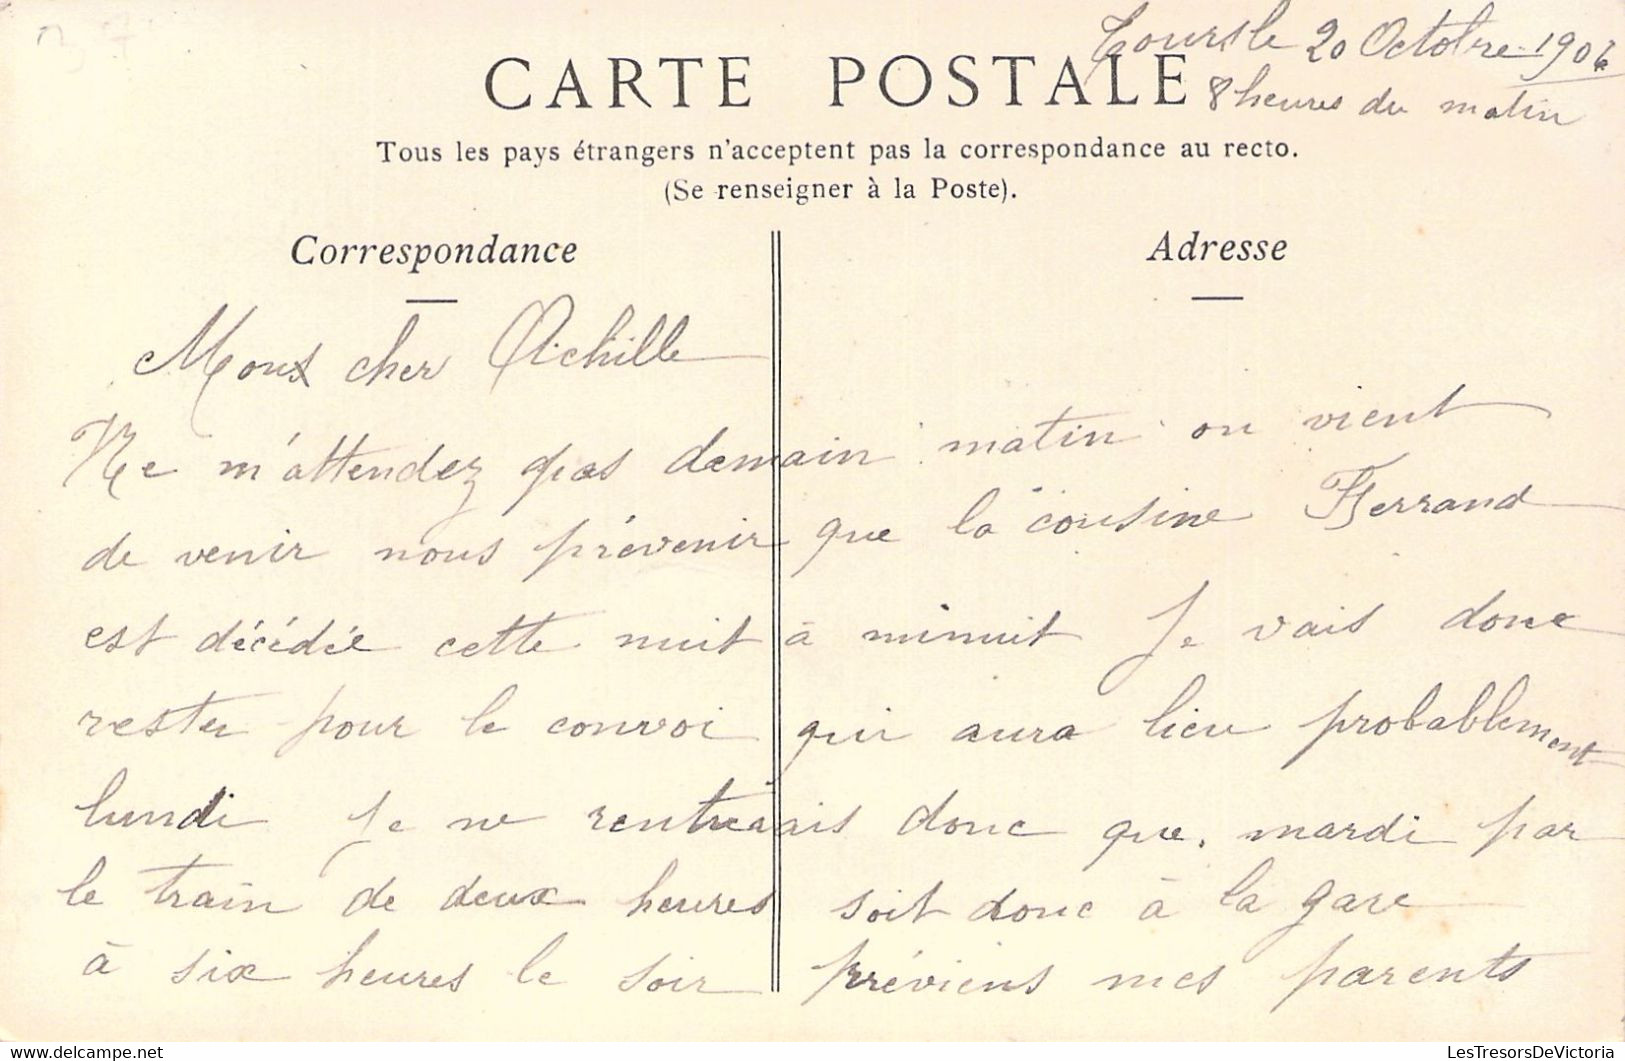 Tours le 20 Octobre 1906
CARTE POSTALE
8 heures du matin
Tous les pays étrangers n'acceptent pas la correspondance au recto.
(Se renseigner à la Poste).
Correspondance
Adresse
Mon cher Achille
Ne m'attendez pas demain matin on vient
de venir nous prévenir que la cousine Ferrand
est décédée cette nuit à minuit Je vais donc
rester pour le convoi qui aura lieu probablement
lundi Je ne rentrerais donc que mardi par
le train de deux heures soit donc à la gare
à six heures le soir préviens mes parents
LesTresorsDeVictoria